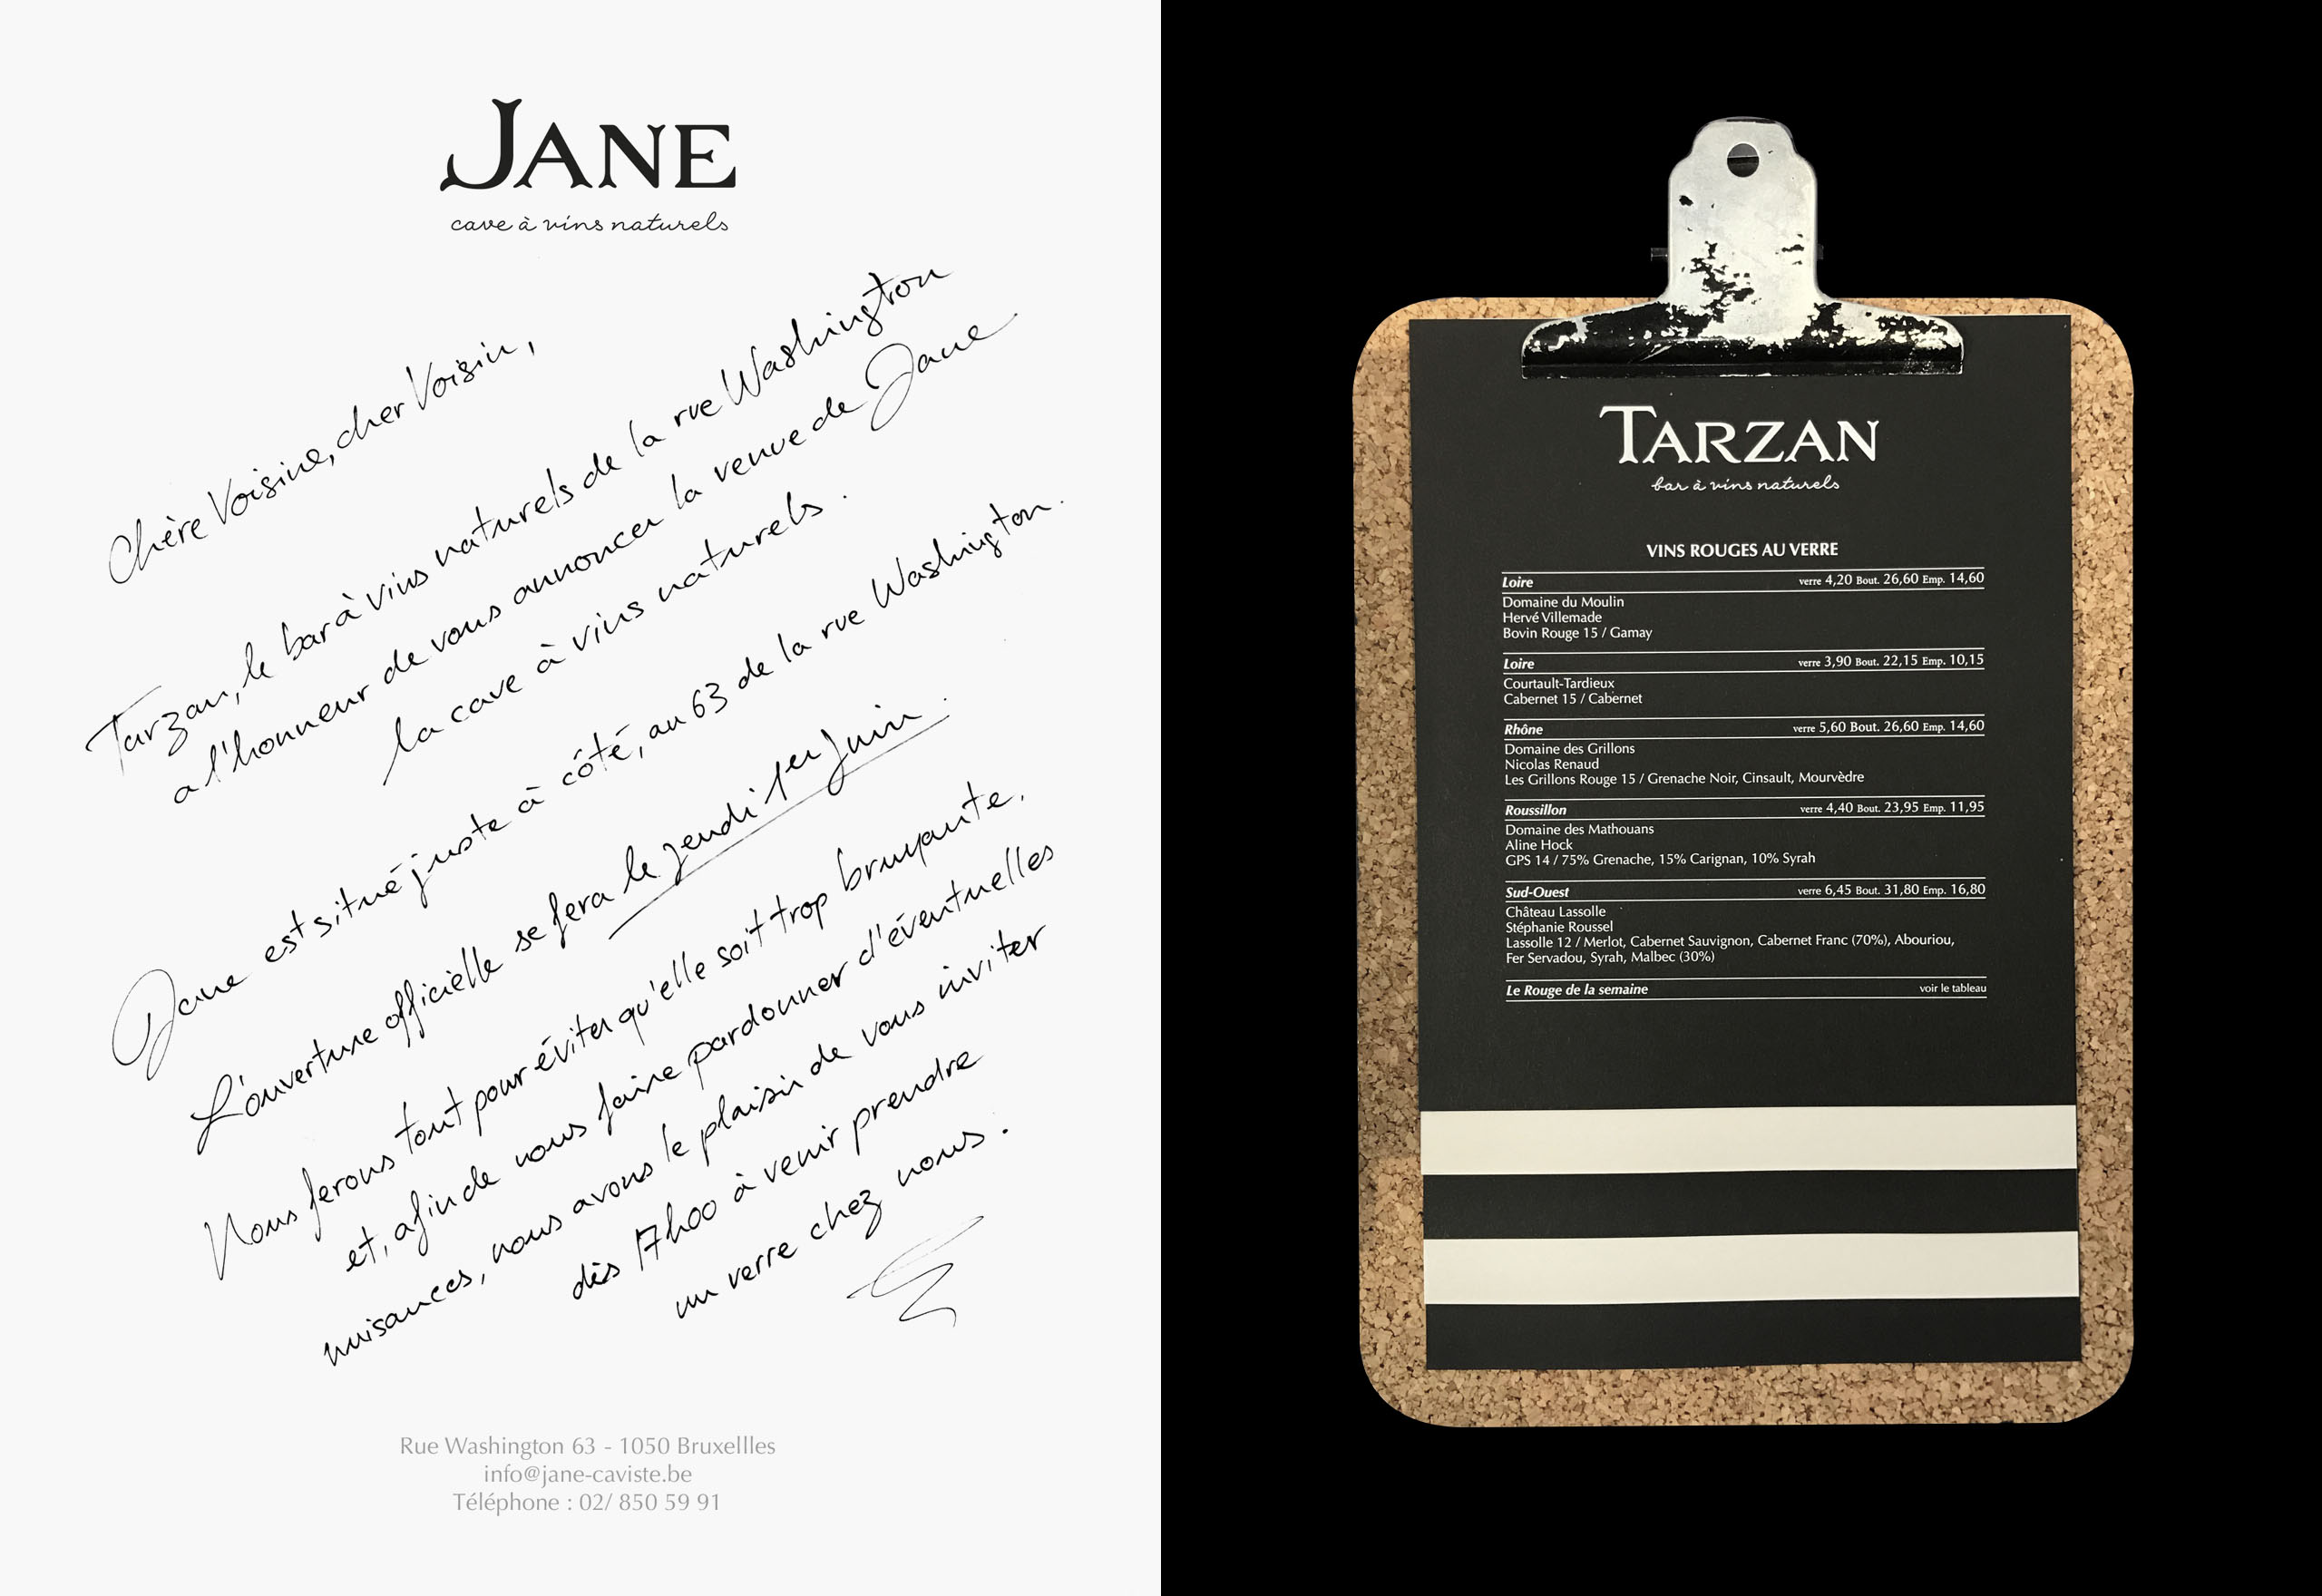 JANE
cave à vins naturels
Chère Voisine, cher Voisin,
Tarzan, le bar à vins naturels de la rue Washington
a l'honneur de vous annoncer la venue de Jane
la cave à vins naturels.
Jane est situé juste à côté, au 63 de la rue Washington.
L'ouverture officielle se fera le jeudi 1er Juin.
Nous ferons tout pour éviter qu'elle soit trop bruyante,
et, afin de nous faire pardonner d'éventuelles
nuisances, nous avons le plaisir de vous inviter
dès 17h00 à venir prendre
un verre chez nous.
Rue Washington 63 - 1050 Bruxellles
info@jane-caviste.be
Téléphone : 02/ 850 59 91
TARZAN
bar à vins naturels
VINS ROUGES AU VERRE
Loire verre 4,20 Bout. 26,60 Emp. 14,60
Domaine du Moulin
Hervé Villemade
Bovin Rouge 15 / Gamay
Loire verre 3,90 Bout. 22,15 Emp. 10,15
Courtault-Tardieux
Cabernet 15 / Cabernet
Rhône verre 5,60 Bout. 26,60 Emp. 14,60
Domaine des Grillons
Nicolas Renaud
Les Grillons Rouge 15 / Grenache Noir, Cinsault, Mourvèdre
Roussillon verre 4,40 Bout. 23,95 Emp. 11,95
Domaine des Mathouans
Aline Hock
GPS 14 / 75% Grenache, 15% Carignan, 10% Syrah
Sud-Ouest verre 6,45 Bout. 31,80 Emp. 16,80
Château Lassolle
Stéphanie Roussel
Lassolle 12 / Merlot, Cabernet Sauvignon, Cabernet Franc (70%), Abouriou,
Fer Servadou, Syrah, Malbec (30%)
Le Rouge de la semaine voir le tableau